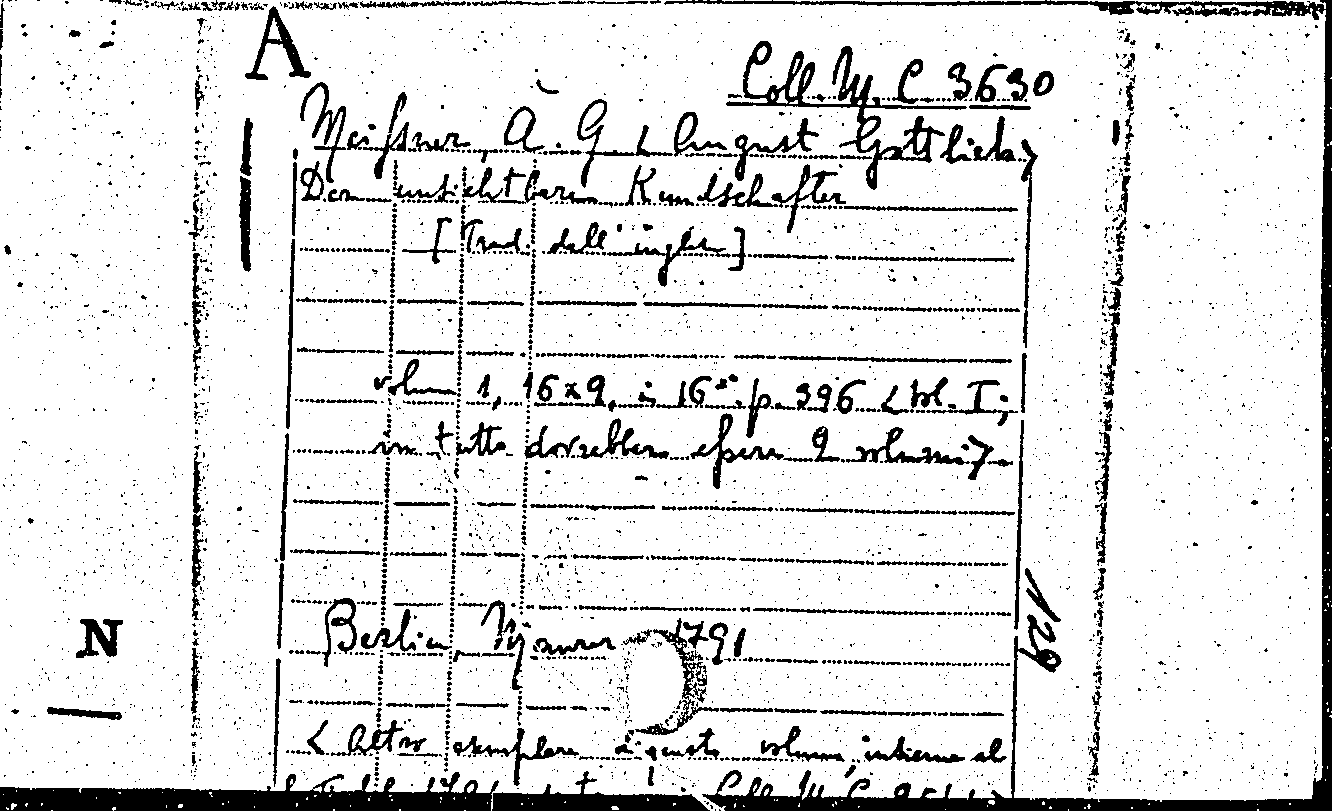 A
Coll. M. C 3630
Meißner, A. G. < August Gottlieb >
Der unsichtbare Kundschafter
[Trad. dall' inglese]
volume 1, 16x9, in 16°. p. 396 < Vol. I;
in tutto dovrebbero essere 2 volumi >
129
N
Berlin, Maurer 1791
< Altro esemplare di questo volume, insieme al